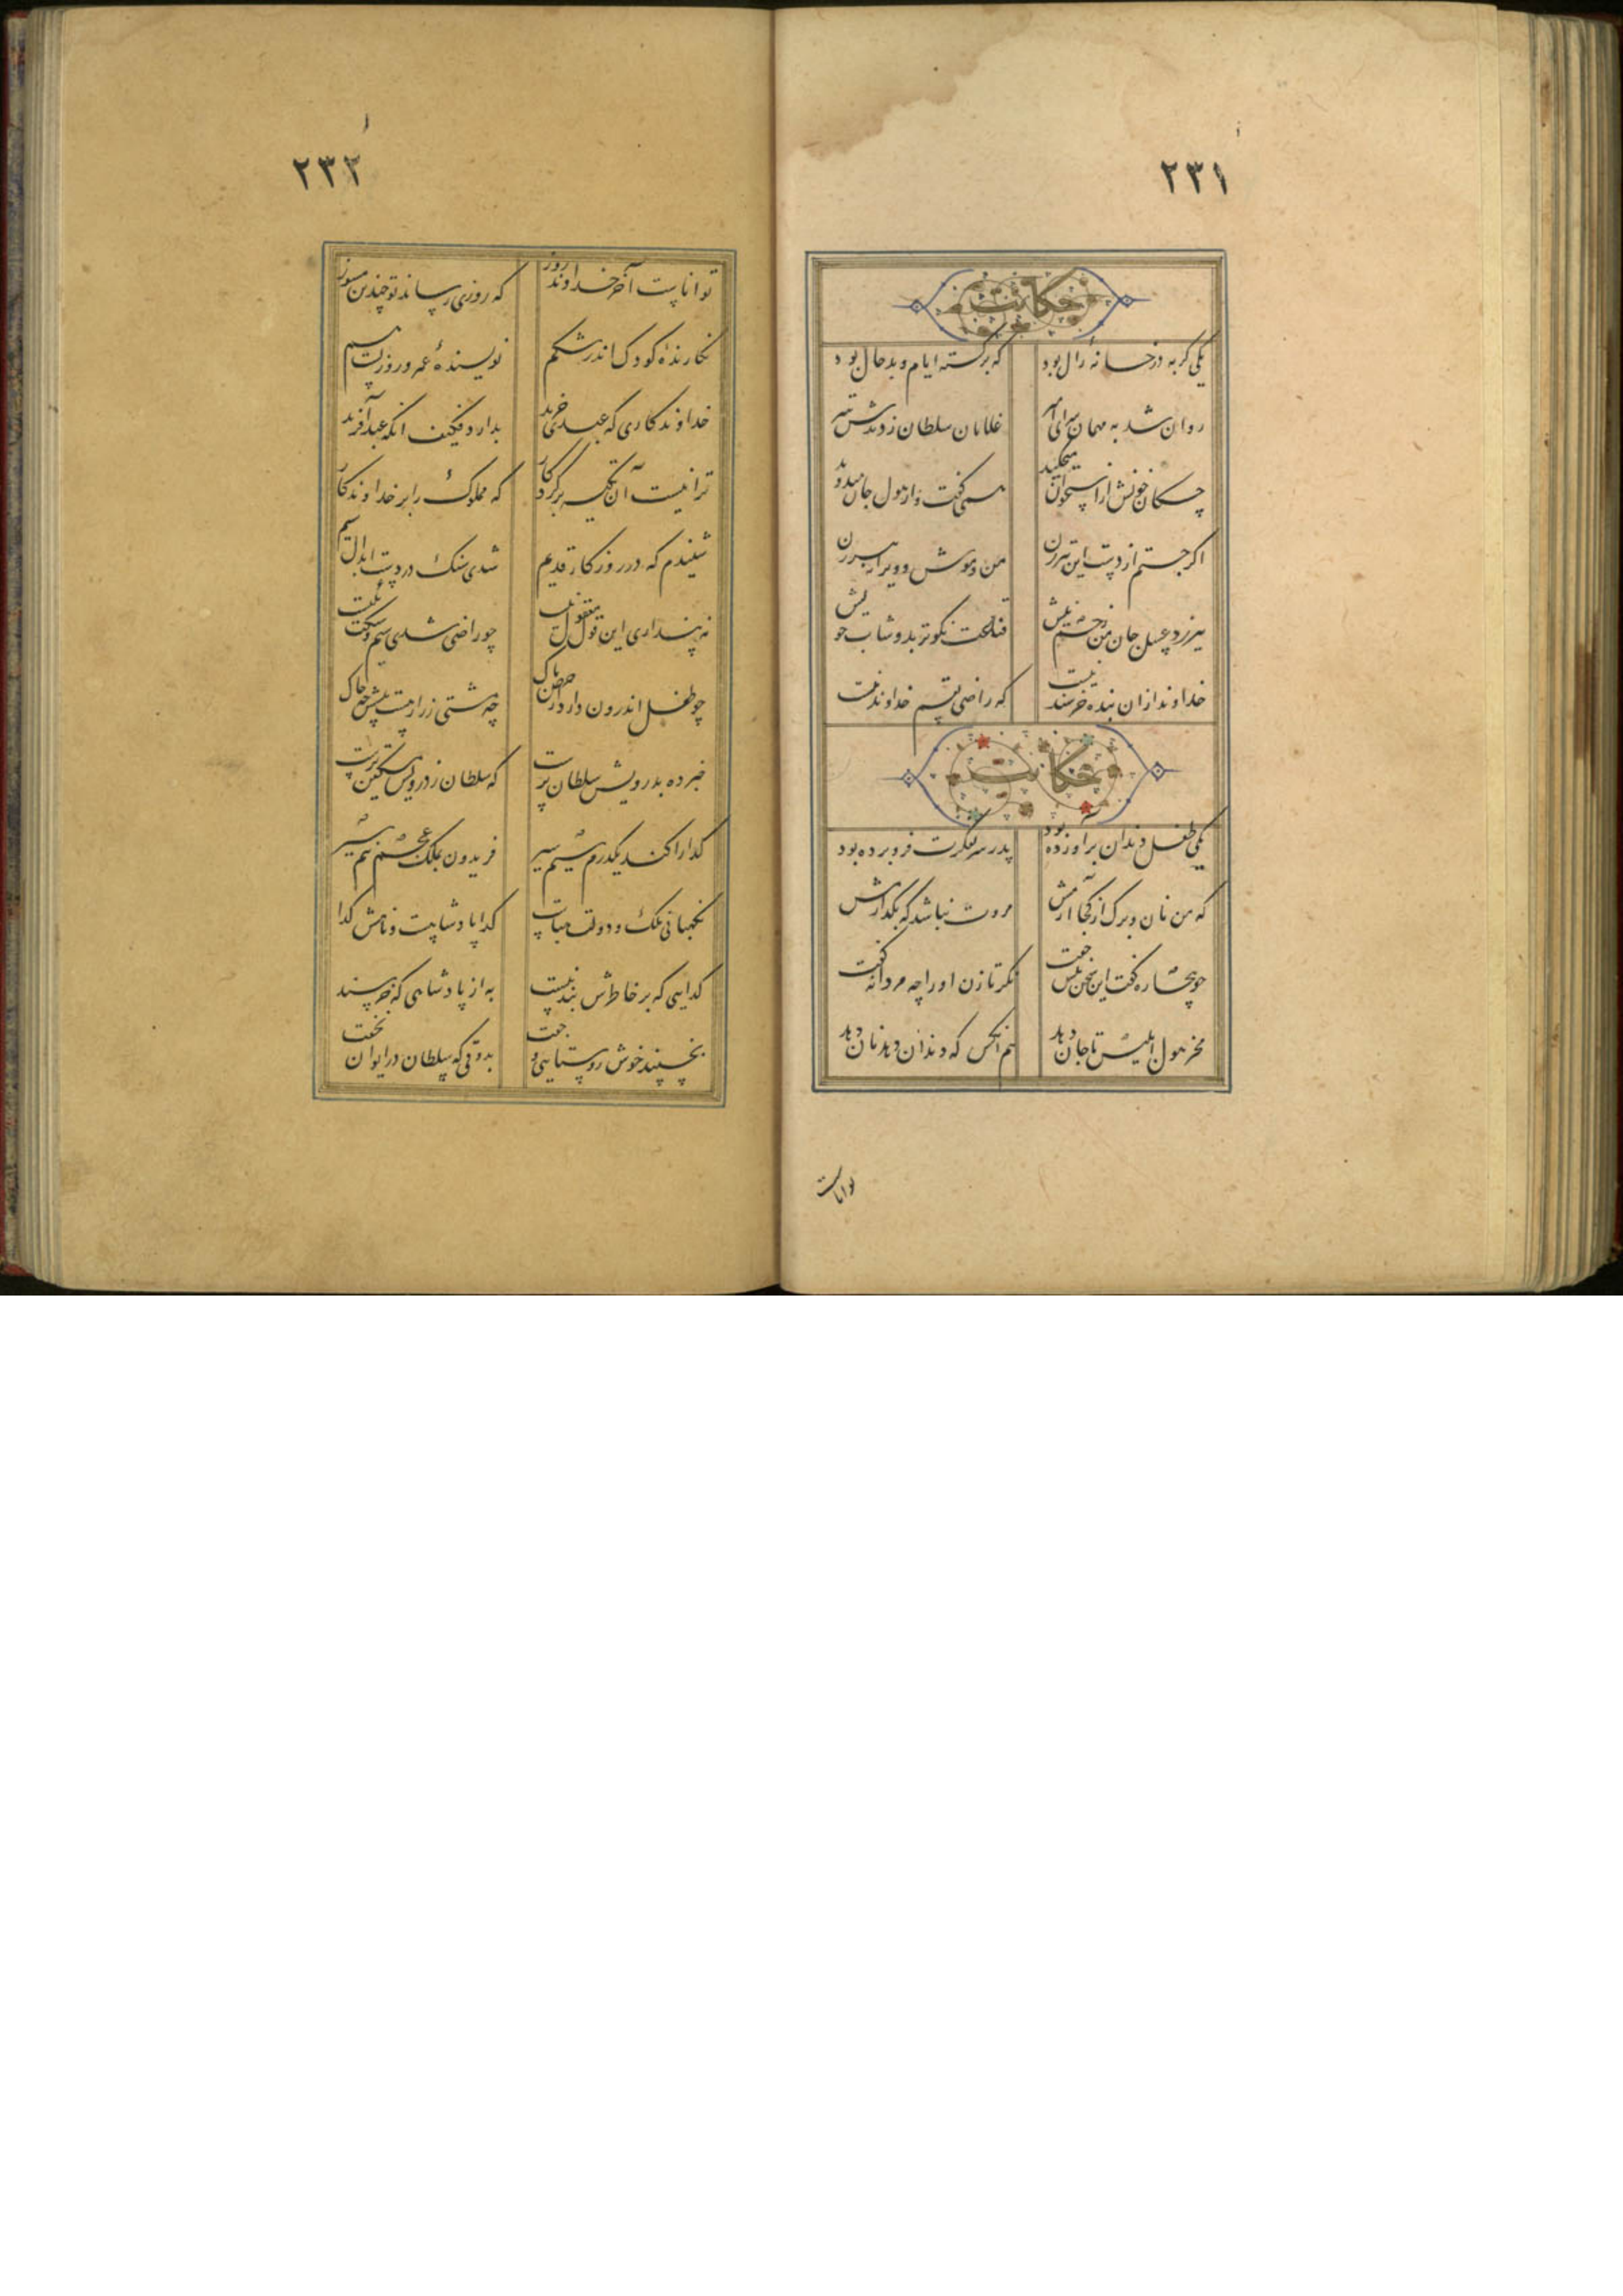 ٢٣١
حکایت
یکی کربه در خانهٔ زال بود که برکشته ایام و بدحال بود
روان شد به مهمان سرای امیر غلامان سلطان زدندش تیر
چکان خونش از استخوان میچکید همی کفت و از هول جان میدوید
اکر جستم از دست این تیرزن من و موش و ویرانهٔ پیرزن
نیرزد عسل جان من زخم نیش قناعت نکوتر بدوشاب خویش
خداوند ازان بنده خرسند نیست که راضی بقسم خداوند نیست
حکایت
یکی طفل دندان برآورده بود پدر سر بفکرت فرو برده بود
که من نان و برک از کجا آرمش مروت نباشد که بکذارمش
چو بیچاره کفت این سخن پیش جفت نکر تا زن او را چه مردانه کفت
مخور هول ابلیس تا جان دهد هم انکس که دندان دهد نان دهد
تواناست
٢٣٢
تواناست آخر خداوند روز که روزی رساند تو چندین مسوز
نکارندهٔ کودک اندر شکم نویسندهٔ عمر و روزیست هم
خداوندکاری که عبدی خرید بدارد فکیف انکه عبد آفرید
ترا نیست آن تکیه بر کردکار که مملوک را بر خداوندکار
شنیدم که در روزکار قدیم شدی سنک در دست ابدال سیم
نه پنداری این قول معقول نیست چو راضی شدی سیم و سنکت یکیست
چو طفل اندرون دارد از حرص پاک چه مشتی زرش پیش همت چه خاک
خبر ده بدرویش سلطان پرست که سلطان ز درویش مسکین ترست
کدا را کند یکدرم سیم سیر فریدون بملک عجم نیم سیر
نکهبانی ملک و دولت بلاست کدا پادشاهست و نامش کداست
کدایی که بر خاطرش بند نیست به از پادشاهی که خرسند نیست
بخسپند خوش روستایی و جفت بذوقی که سلطان در ایوان نخفت